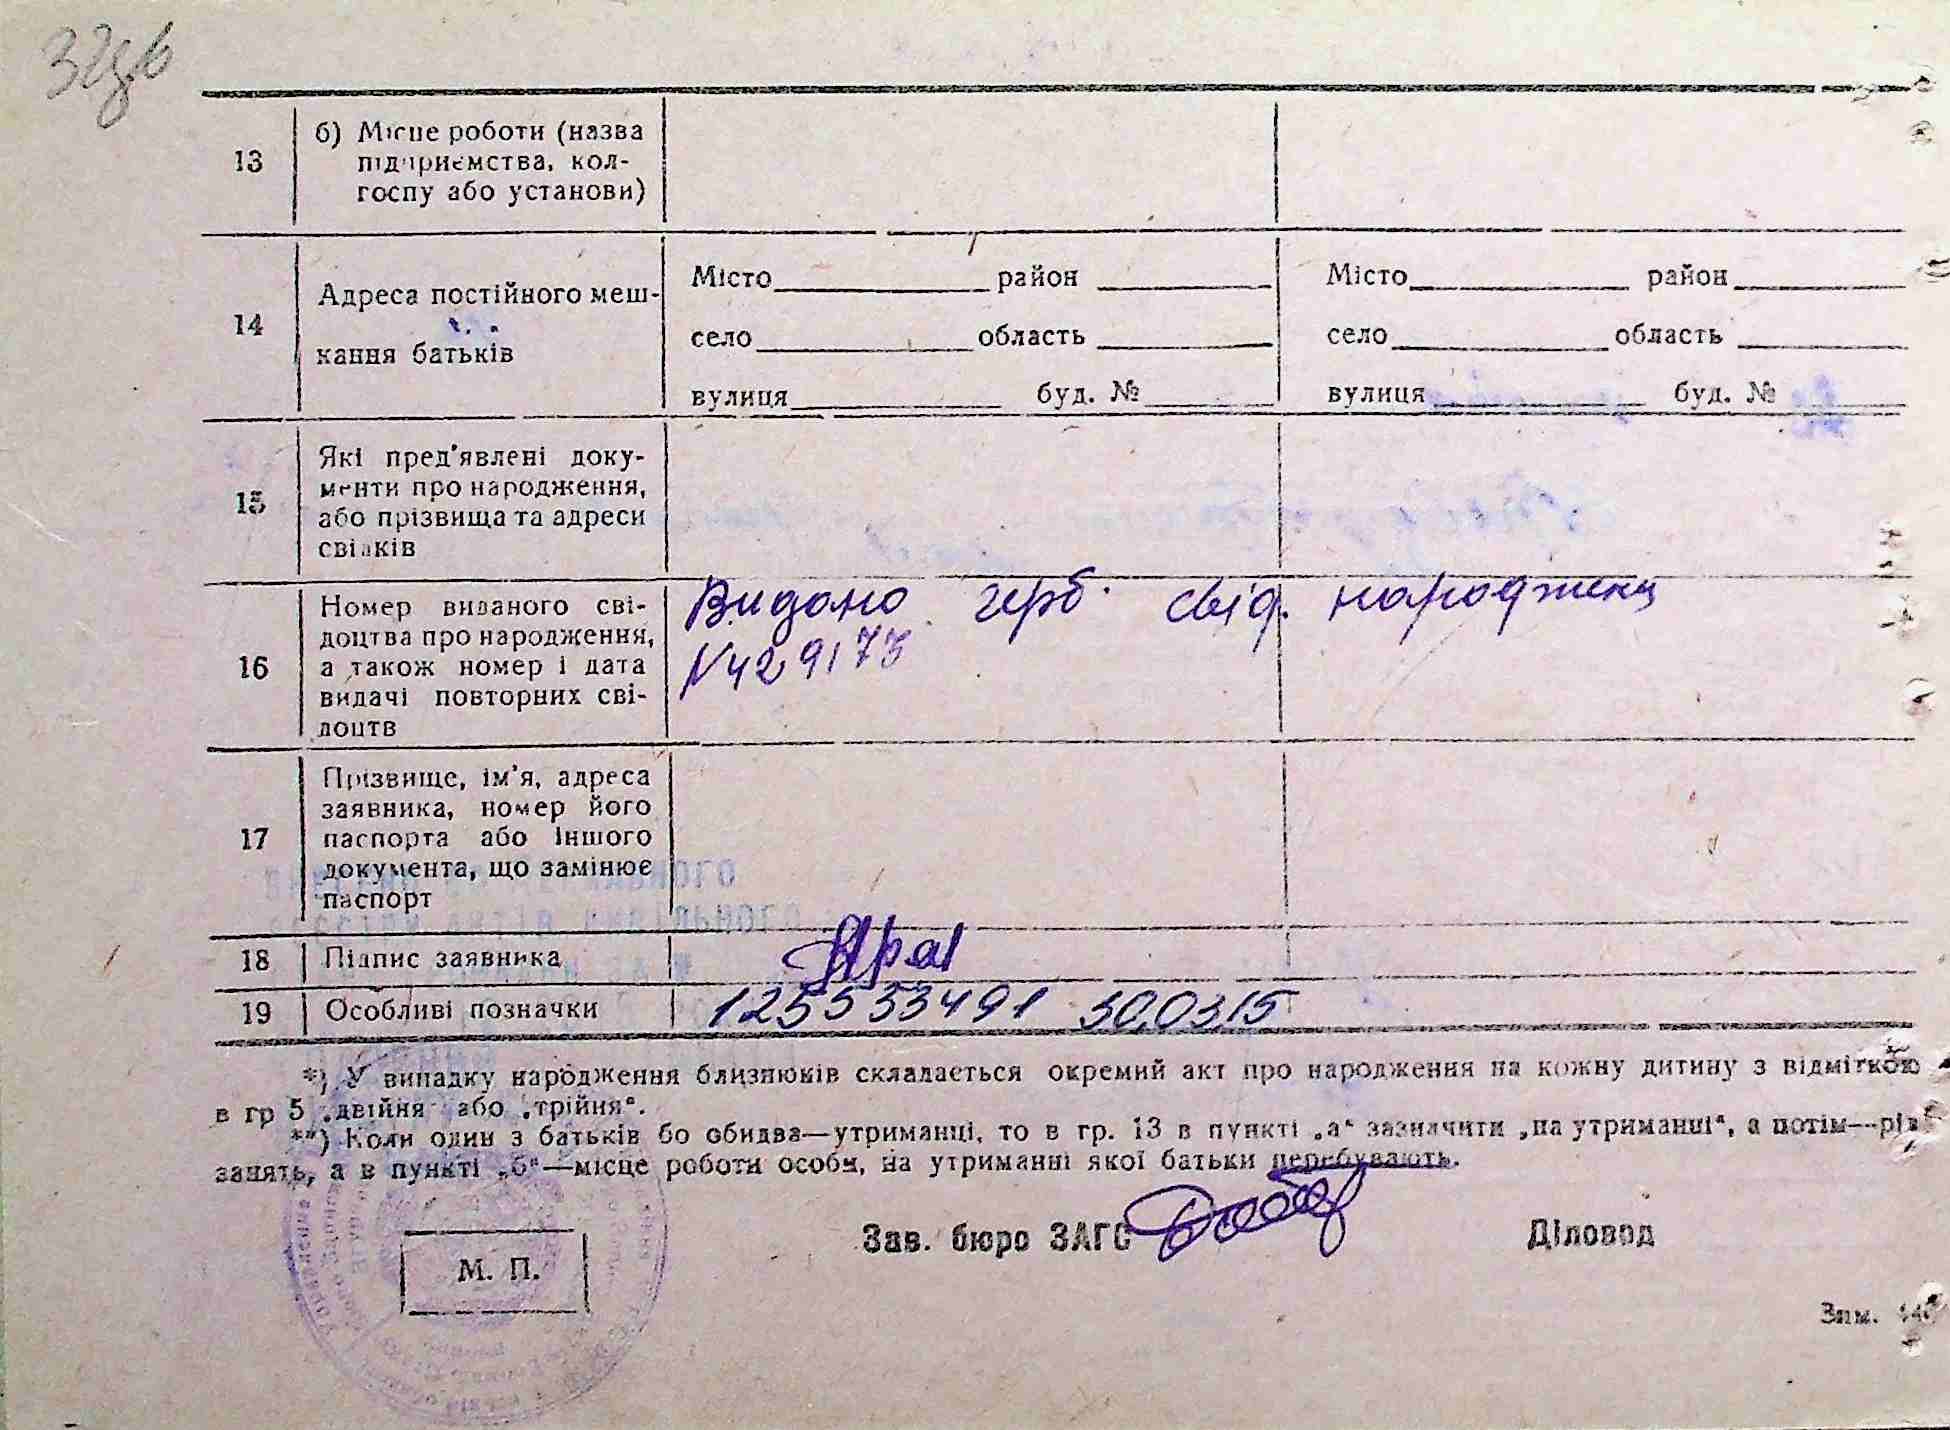 32зв
13
б) Місце роботи (назва
підприємства, кол-
госпу або установи)
14
Адреса постійного меш-
кання батьків
Місто район
село область
вулиця буд. №
Місто район
село область
вулиця буд. №
15
Які пред'явлені доку-
менти про народження,
або прізвища та адреси
свідків
16
Номер виданого сві-
доцтва про народження,
а також номер і дата
видачі повторних сві-
доцтв
Видано герб. свід. народження
N429173
17
Прізвище, ім'я, адреса
заявника, номер його
паспорта або іншого
документа, що замінює
паспорт
18
Підпис заявника
19
Особливі позначки
125533491 30.03.15
*) У випадку народження близнюків складається окремий акт про народження на кожну дитину з відміткою
в гр 5 „двійня" або „трійня".
**) Коли один з батьків бо обидва—утриманці, то в гр. 13 в пункті „а" зазначити „на утриманні", а потім—рід
занять, а в пункті „б"—місце роботи особи, на утриманні якої батьки перебувають.
Зав. бюро ЗАГС
Діловод
М. П.
Зам.